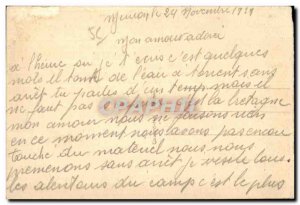 24 Novembre 1939
Mon amour adoré
a l'heure ou je t'ecris c'est quelques
mots il tombe de l'eau a torrent sans
arret tu parles d'un temps mais il
ne faut pas la bretagne
mon amour nous ne faisons rien
en ce moment nous avons pas encore
touche du materiel nous nous
promenons sans arret je visite tous
les alentours du camp c'est le plus